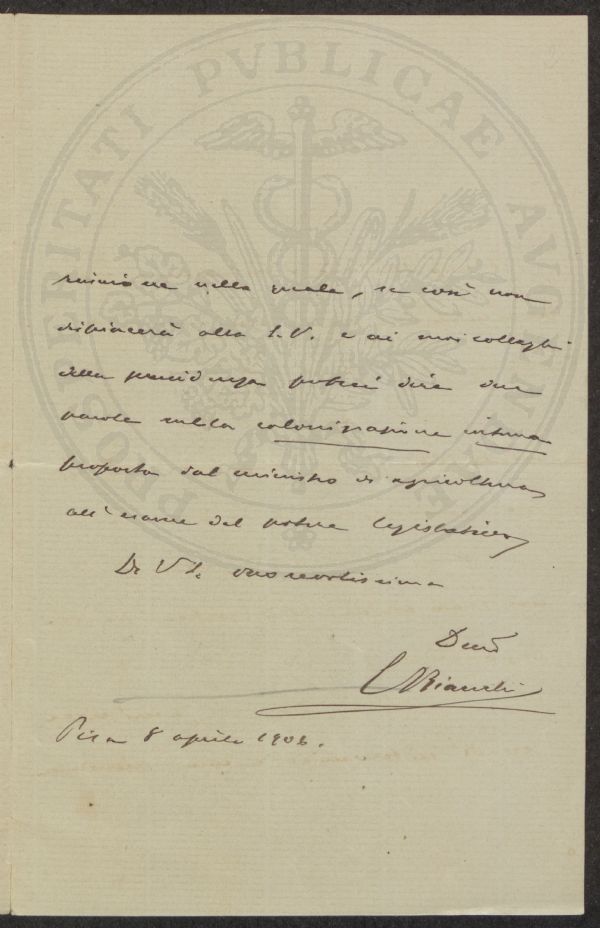 PROSPERITATI PVBLICAE AVG
riunione nella quale, se così non
dispiacerà alla S.V. e ai suoi colleghi
della presidenza potrei dire due
parole sulla colonizzazione interna
proposta dal ministro di agricoltura
all'esame del potere legislativo
Di V.S. onorevolissima
Devmo
Bianchi
Pisa 8 aprile 1906.